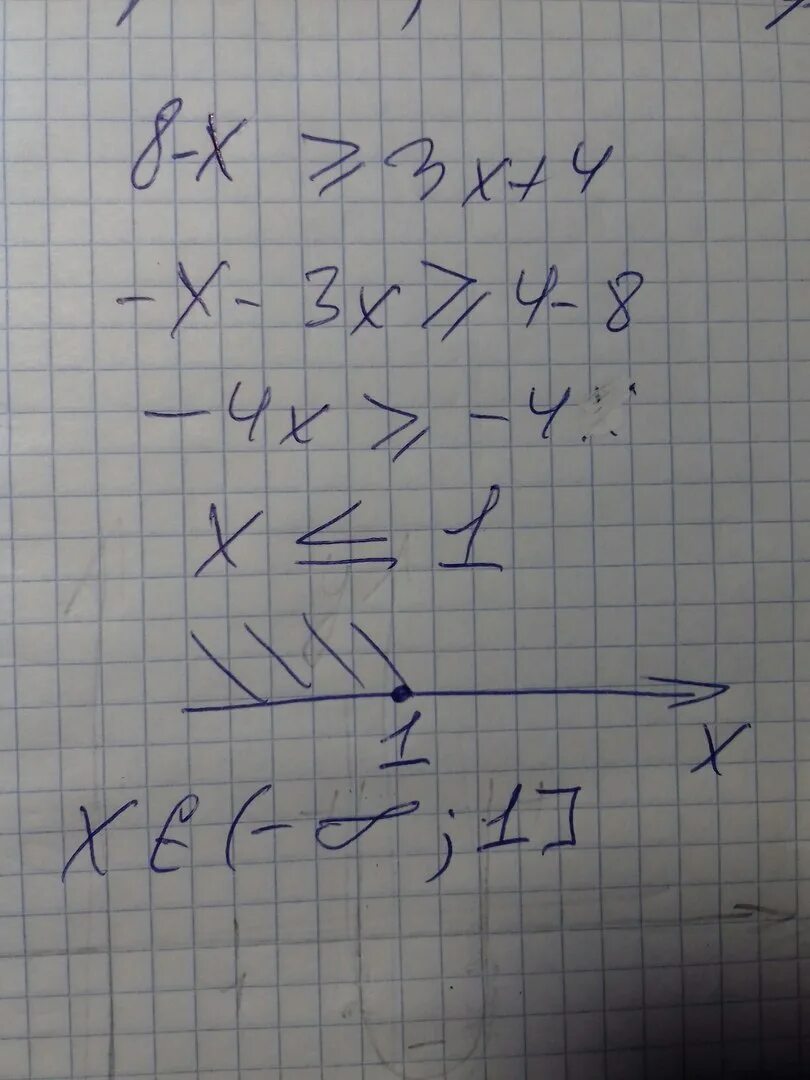 8-x ⩾ 3x+4
-x-3x ⩾ 4-8
-4x ⩾ -4
x ≤ 1
1
x
x ∈ (-∞; 1]